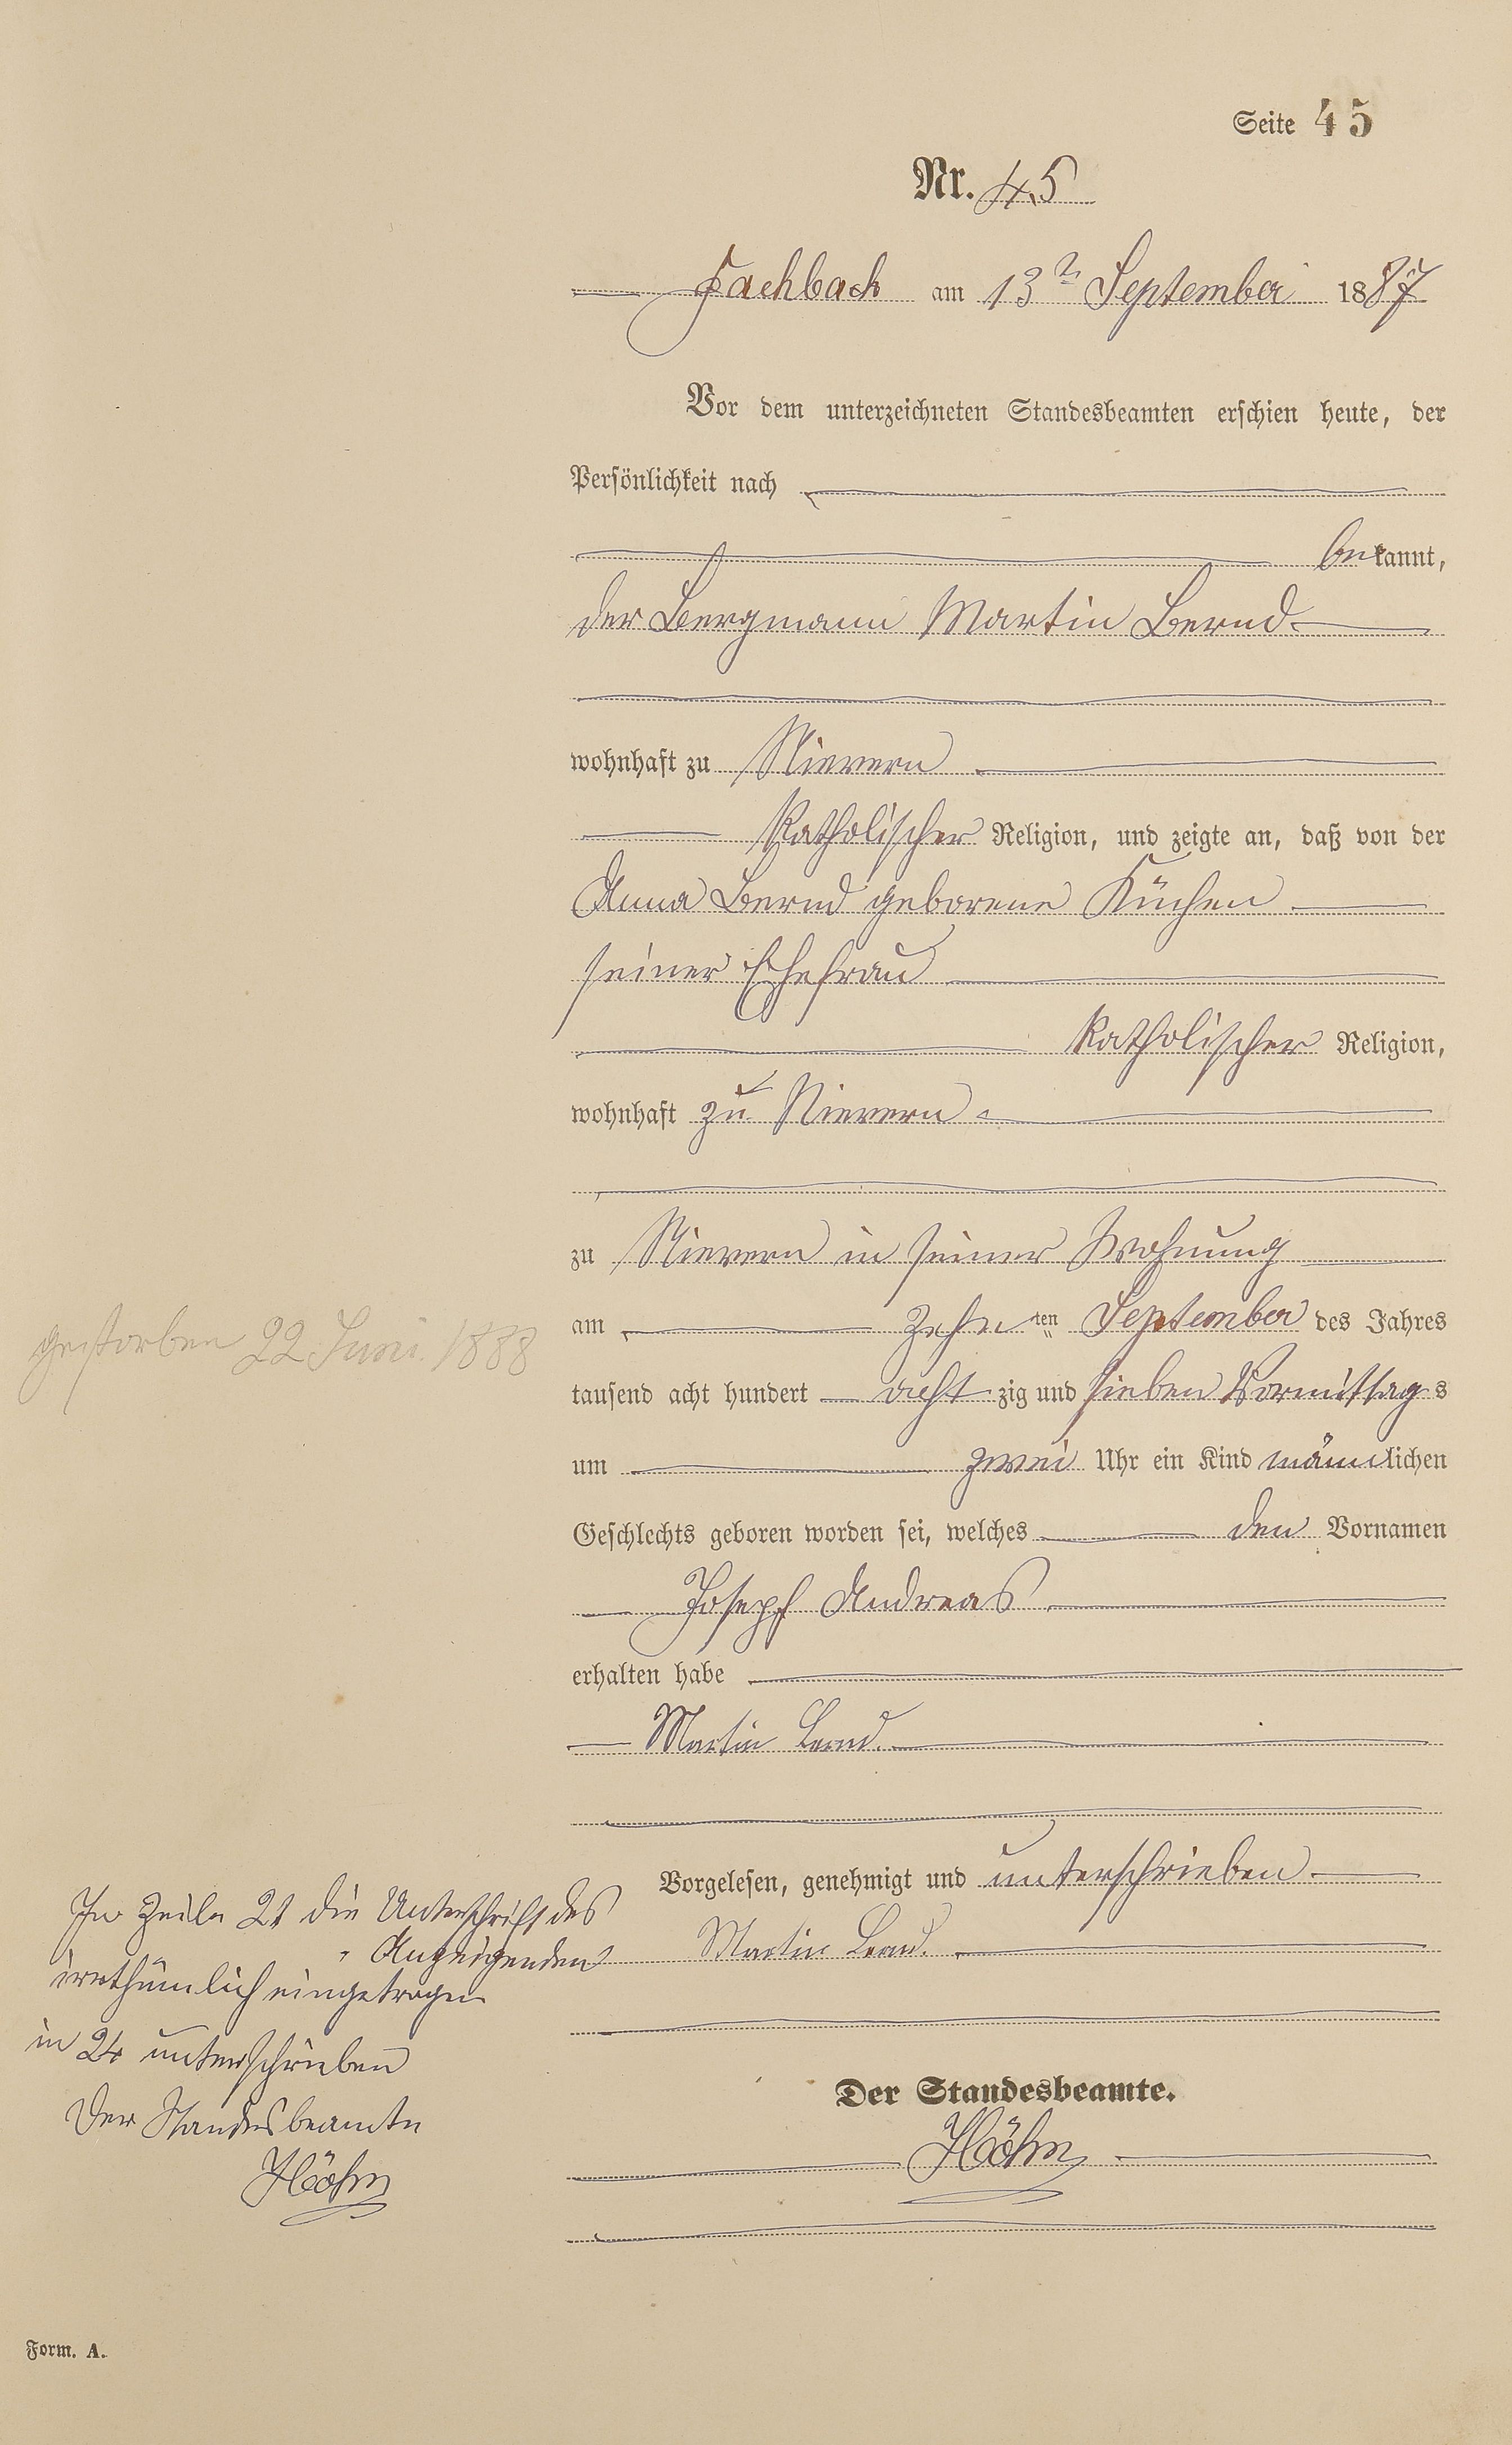 Seite 45
Nr. 45
Fachbach am 13ten September 1887
Vor dem unterzeichneten Standesbeamten erschien heute, der
Persönlichkeit nach
bekannt,
der Bergmann Martin Bernd
wohnhaft zu Nievern
katholischer Religion, und zeigte an, daß von der
Anna Bernd geborene Küchen
seiner Ehefrau
katholischer Religion,
wohnhaft zu Nievern
zu Nievern in seiner Wohnung
am zehnten September des Jahres
tausend acht hundert achtzig und sieben Vormittags
um zwei Uhr ein Kind männlichen
Geschlechts geboren worden sei, welches den Vornamen
Joseph Andreas
erhalten habe
Martin Bernd.
Vorgelesen, genehmigt und unterschrieben
Martin Bernd.
Der Standesbeamte.
Höhn
gestorben 22 Juni 1888
In Zeile 21 die Unterschrift des
" Anzeigenden
irrthümlich eingetragen
in 24 unterschrieben
Der Standesbeamte
Höhn
Form. A.